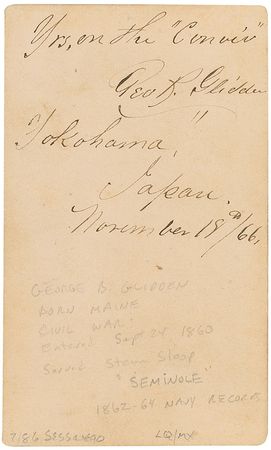 Yrs, on the "Conoiv"
Geo B. Glidden
"
Yokohama,
Japan.
November 18th /66,
GEORGE B. GLIDDEN
BORN MAINE
CIVIL WAR:
Entered Sept 24, 1860
Served Steam Sloop
"SEMINOLE"
1862-64 NAVY RECORDS
LQ/MX